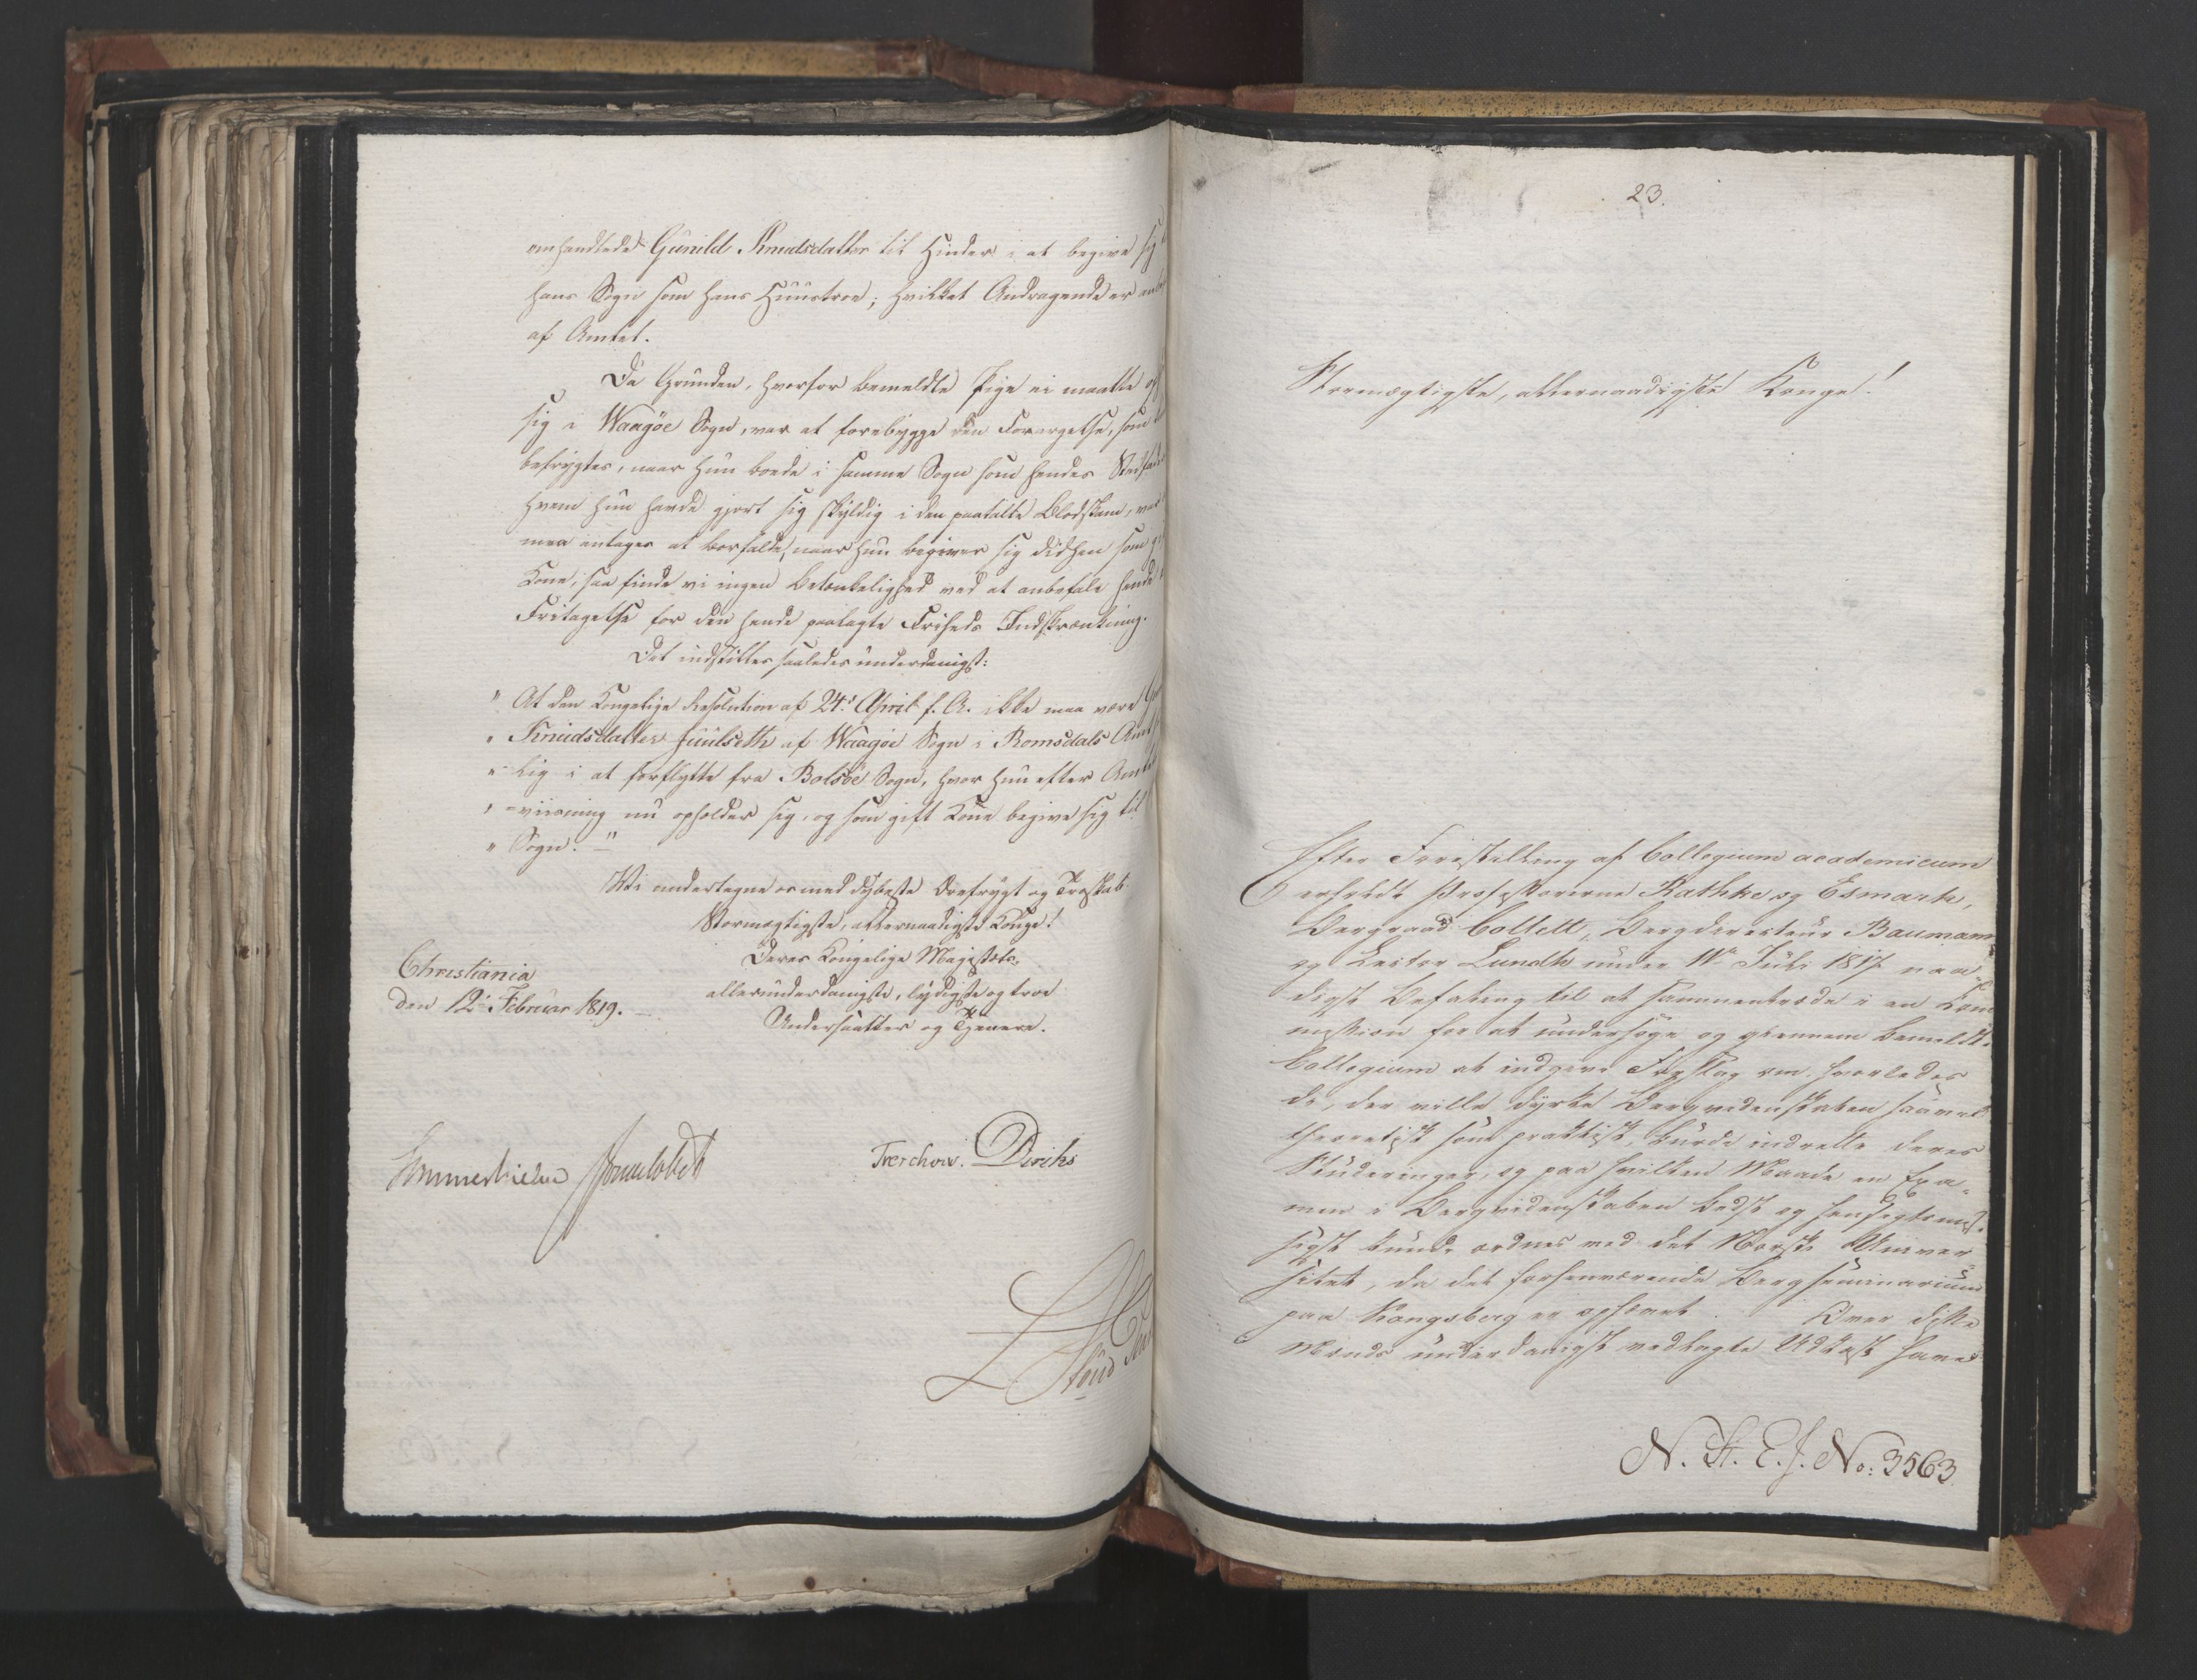 omhandlede Gunild Knudsdatter til Hinder i at begive sig
hans Sogn som hans Huustroe; hvilket Andragende er
af Amtet.
Da Grunden, hvorfor bemeldte Pige ei maatte
sig i Waagøe Sogn, var at forebygge den Forargelse, som
befrygtes, naar hun boede i samme Sogn som hendes
hvem hun havde gjort sig skyldig i den paatalte Blodskam,
maa antages at bortfalde, naar hun begiver sig didhen som
Kone, saa finde vi ingen Betænkelighed ved at anbefale hende
Fritagelse for den hende paalagte Friheds Indskrænkning.
Det indstilles saaledes underdanigst:
" At den Kongelige Resolution af 24de April f. A. ikke maa være
" Knudsdatter Juulseth af Waagøe Sogn i Romsdals Amt
" lig i at forflytte fra Bolsøe Sogn, hvor hun efter
" =viisning nu opholder sig, og som gift Kone begive sig til
" Sogn."
Vi undertegne os med dybeste Ærefrygt og Troskab
Stormægtigste, allernaadigste Konge!
Deres Kongelige Majestæts
allerunderdanigste, lydigste og troe
Undersaatter og Tjenere.
Christiania
den 12te Februar 1819.
Sommerhielm
Treschow. Diriks
23.
Stormægtigste, allernaadigste Konge!
Efter Forestilling af Collegium academicum
erholdt Professorerne Rathke og Esmark,
Bergraad Collett, Bergdirecteur Baumann
og Lector Lundh under 11te Juli 1817 naa=
digst Befaling til at sammentræde i en Com
mission for at undersøge og giennem bemeldte
Collegium at indgive Forslag om hvorledes
de, der ville dyrke Bergvidenskaben saavel
theoretisk som praktisk, burde indrette deres
Studeringer, og paa hvilken Maade en Exa=
men i Bergvidenskaben bedst og hensigtsmæs=
sigst kunde ordnes ved det Norske Univer=
sitet, da det forhenværende Bergseminarium
paa Kongsberg er ophævet. Over disse
Mænds underdanigst vedlagte Udkast haver
N. St. E. J. No: 3563